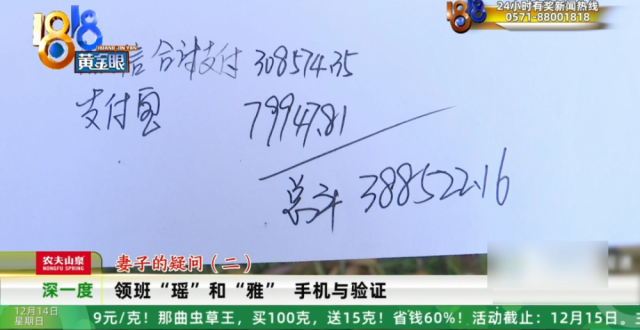 24小时有奖新闻热线
0571-88001818
1818
HUANG JIN YAN
黄金眼
信合计支付 308574.35
支付宝 79947.81
总计 388522.16
农夫山泉
NONGFU SPRING
妻子的疑问(二)
深一度
领班“瑶”和“雅” 手机与验证
12月14日
星期日
9元/克!那曲虫草王,买100克,送15克!省钱60%!活动截止:12月15日。